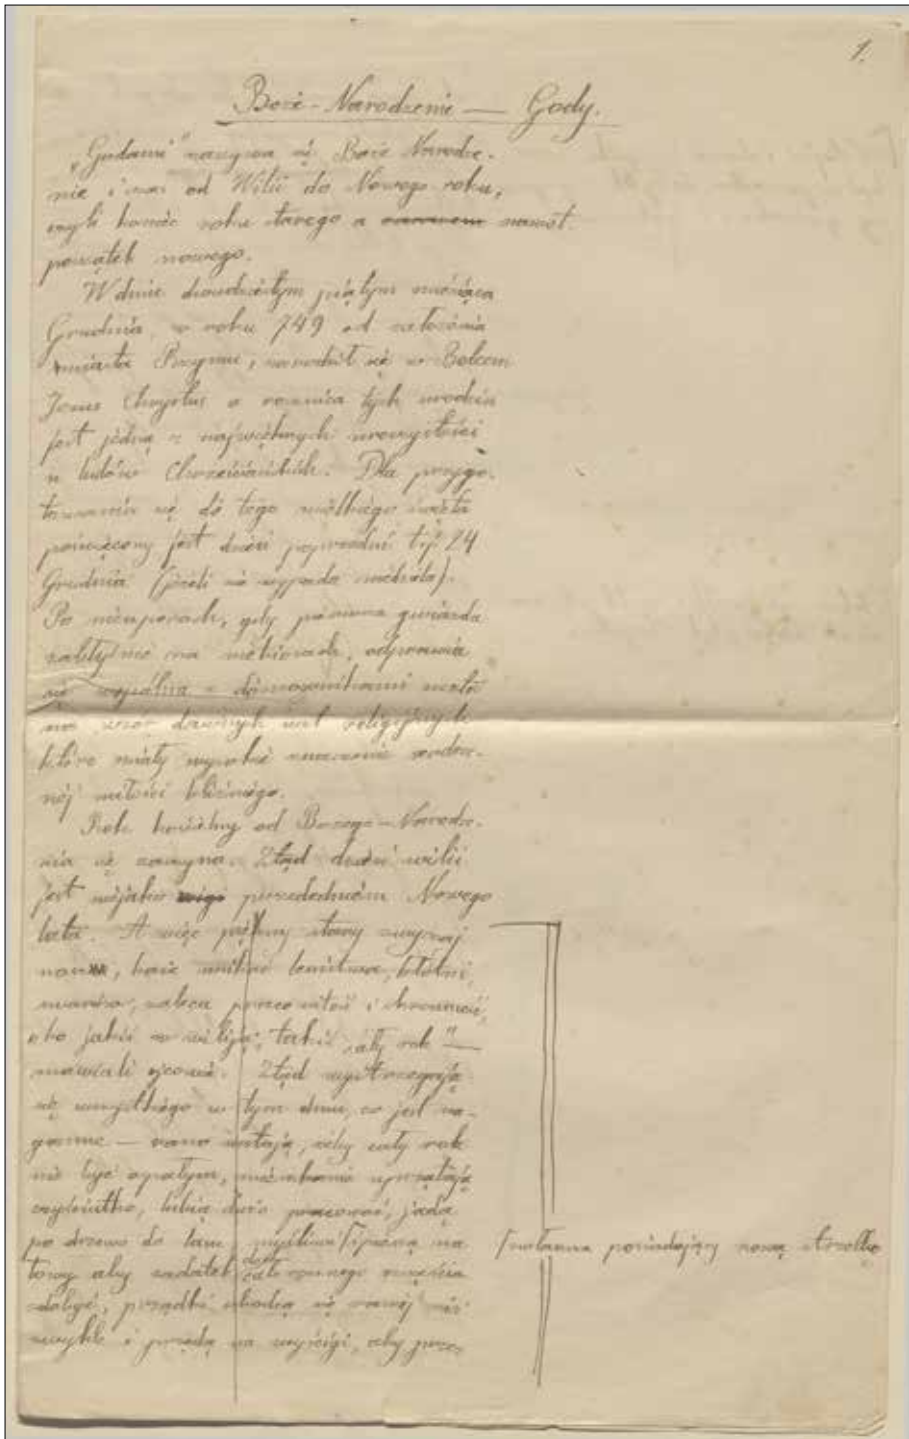 1.
Boże-Narodzenie — Gody.
„Godami" nazywa się Boże Narodze-
nie i czas od Wilii do Nowego roku,
czyli koniec roku starego a nawet
początek nowego.
W dniu dwudziestym piątym miesiąca
Grudnia, w roku 749 od założenia
miasta Rzymu, narodził się w Betleem
Jezus Chrystus a rocznica tych urodzin
jest jedną z największych uroczystości
u ludów Chrześciańskich. Dla przygo-
towania się do tego wielkiego święta
poświęcony jest dzień poprzedni t.j. 24
Grudnia (jeżeli nie wypada niedziela).
Po nieszporach, gdy pierwsza gwiazda
zabłyśnie na niebiosach, odprawia
się wspólna z domownikami uczta
na wzór dawnych uczt religijnych
które miały wyrobić znaczenie serdecz-
nej miłości bliźniego.
Rok kościelny od Bożego-Narodze-
nia się zaczyna. Ztąd dzień wilii
jest niejako przededniem Nowego
lata. A więc piękny stary zwyczaj
nasz, każe unikać lenistwa, kłótni,
swarów, zaleca pracowitość i skromność,
bo jakiś w wiliją, takiś cały rok" —
mawiali ojcowie. Ztąd wystrzegają
się wszystkiego w tym dniu, co jest na-
ganne — rano wstają, żeby cały rok
nie być ospałym, mieszkania uprzątają
czyściutko, lubią dużo pracować, jadą
po drzewo do lasu, myśliwi spieszą na
łowy aby zadatek do całorocznego szczęścia
zdobyć, prządki schodzą się raniej niż
zwykle i przędą na wyścigi, aby prze-
posiadający nową strzelbę